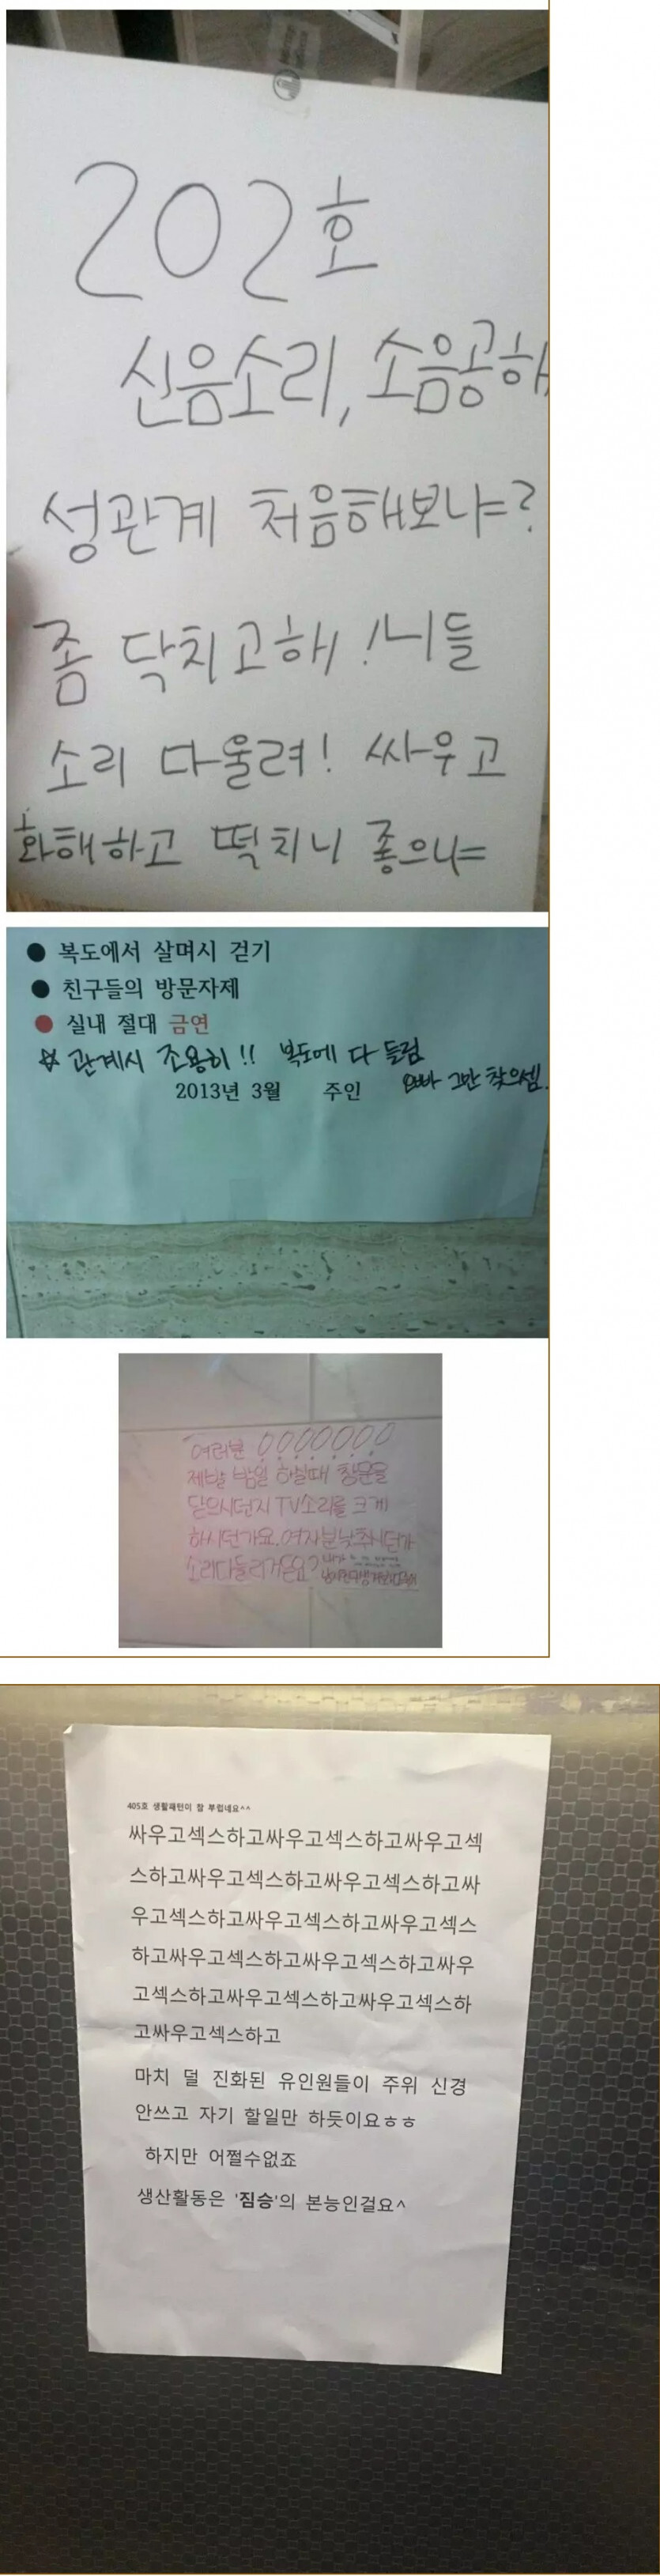 202호
신음소리, 소음공해
성관계 처음해보냐?
좀 닥치고해! 니들
소리 다울려! 싸우고
화해하고 떡치니 좋으냐
● 복도에서 살며시 걷기
● 친구들의 방문자제
● 실내 절대 금연
☆ 관계시 조용히!! 복도에 다 들림
2013년 3월 주인 오빠 그만 찾으셈.
여러분 !!!!!!!
제발 밤일 하실때 창문을
닫으시던지 TV소리를 크게
하시던가요. 여자분 낮추시던가
소리다들리거든요?
405호 생활패턴이 참 부럽네요^^
싸우고섹스하고싸우고섹스하고싸우고섹
스하고싸우고섹스하고싸우고섹스하고싸
우고섹스하고싸우고섹스하고싸우고섹스
하고싸우고섹스하고싸우고섹스하고싸우
고섹스하고싸우고섹스하고싸우고섹스하
고싸우고섹스하고
마치 덜 진화된 유인원들이 주위 신경
안쓰고 자기 할일만 하듯이요ㅎㅎ
하지만 어쩔수없죠
생산활동은 '짐승'의 본능인걸요^